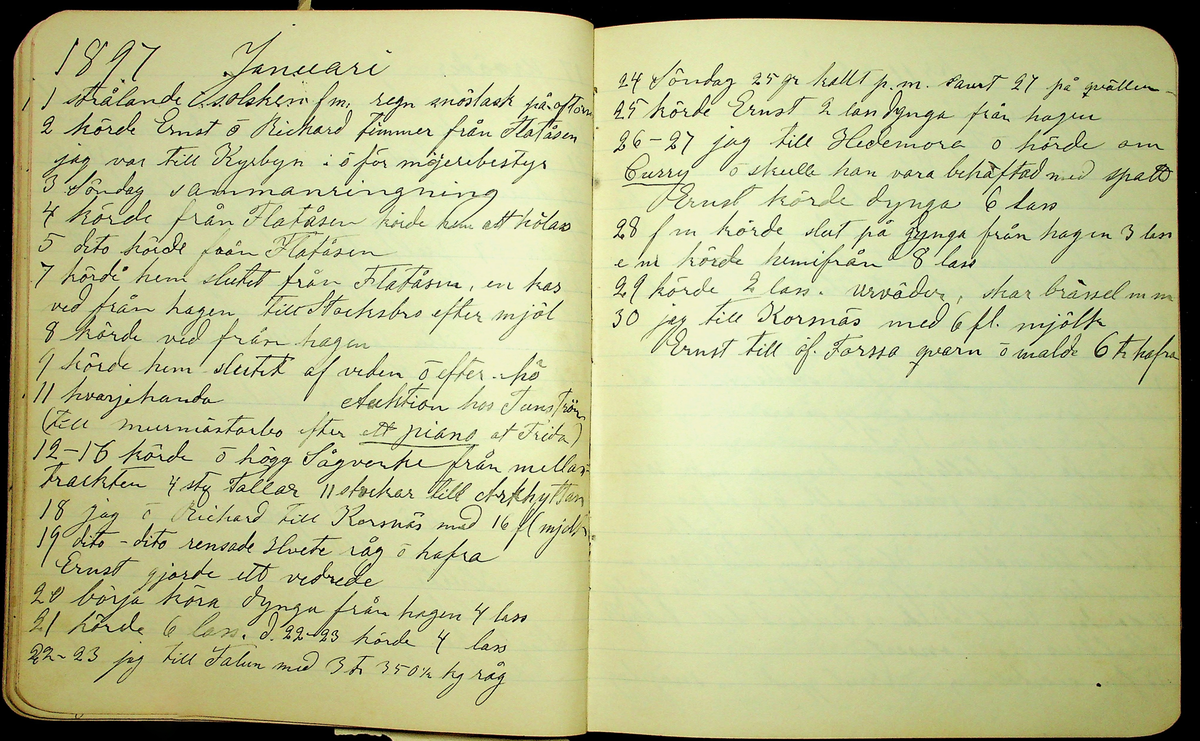 1897 Januari
1 strålande solsken f.m. regn snöslask på afton
2 körde Ernst o Rickard timmer från Flatåsen
jag var till Kyrbyn i o för mejeribestyr
3 Söndag sammanringning
4 körde från Flatåsen körde hem ett hölass
5 dito körde från Flatåsen
7 körde hem slutet från Flatåsen, en kar
ved från hagen till Stocksbro efter mjöl
8 körde ved från hagen
9 körde hem slutet af veden o efter hö
11 hvarjehanda Auktion hos Juns
(till murmästarbo efter ett piano at Frida)
12-16 körde o högg Sågverke från mellan-
trackten 4 sty Tallar 11 stockar till
18 jag o Rickard till Korsnäs med 16 fl mjölk
19 dito - dito rensade Hvete råg o hafra
Ernst gjorde ett vedrede
20 börja köra dynga från hagen 4 lass
21 körde 6 lass. d. 22-23 körde 4 lass
22-23 jag till Falun med 3 350 kg råg
24 Söndag 25 gr kallt p.m. samt 27 på qvällen
25 körde Ernst 2 lass dynga från hagen
26-27 jag till Hedemora o hörde om
Curry o skulle han vara behäftad med spatt
Ernst körde dynga 6 lass
28 f m körde slut på dynga från hagen 3 lass
e m körde hemifrån 8 lass
29 körde 2 lass. urväder, skar brässel m m
30 jag till Korsnäs med 6 fl. mjölk
Ernst till öf. Forssa qvarn o malde 6 t hafra